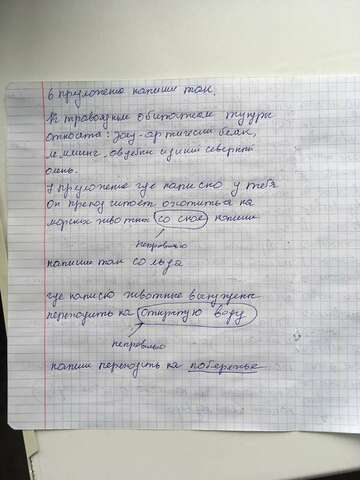 6 пруложение напиши там.
К травоядным обитателям тундры
относятся: заяц-арктический беляк,
лемминг, овцебык и дикий северный
олень.
7 пруложение где написно у тебя
Он предпочитает охотиться на
морских животных со скал напиши
неправильно
напиши там со льда
где написно животные вынуждены
переходить на открытую воду
неправильно
напиши переходить на побережье